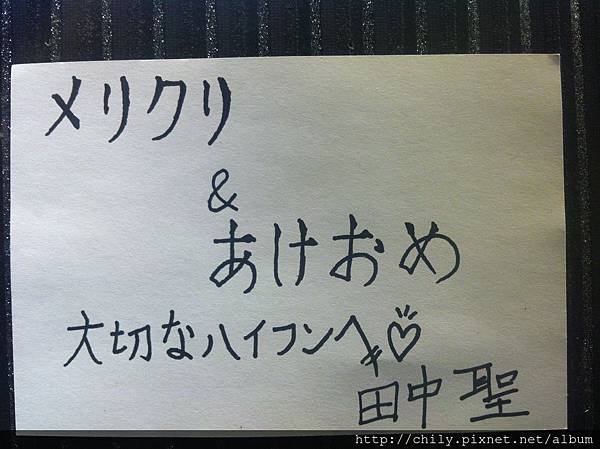 メリクリ
&
あけおめ
大切なハイフンへ♡
田中聖
http://chily.pixnet.net/album